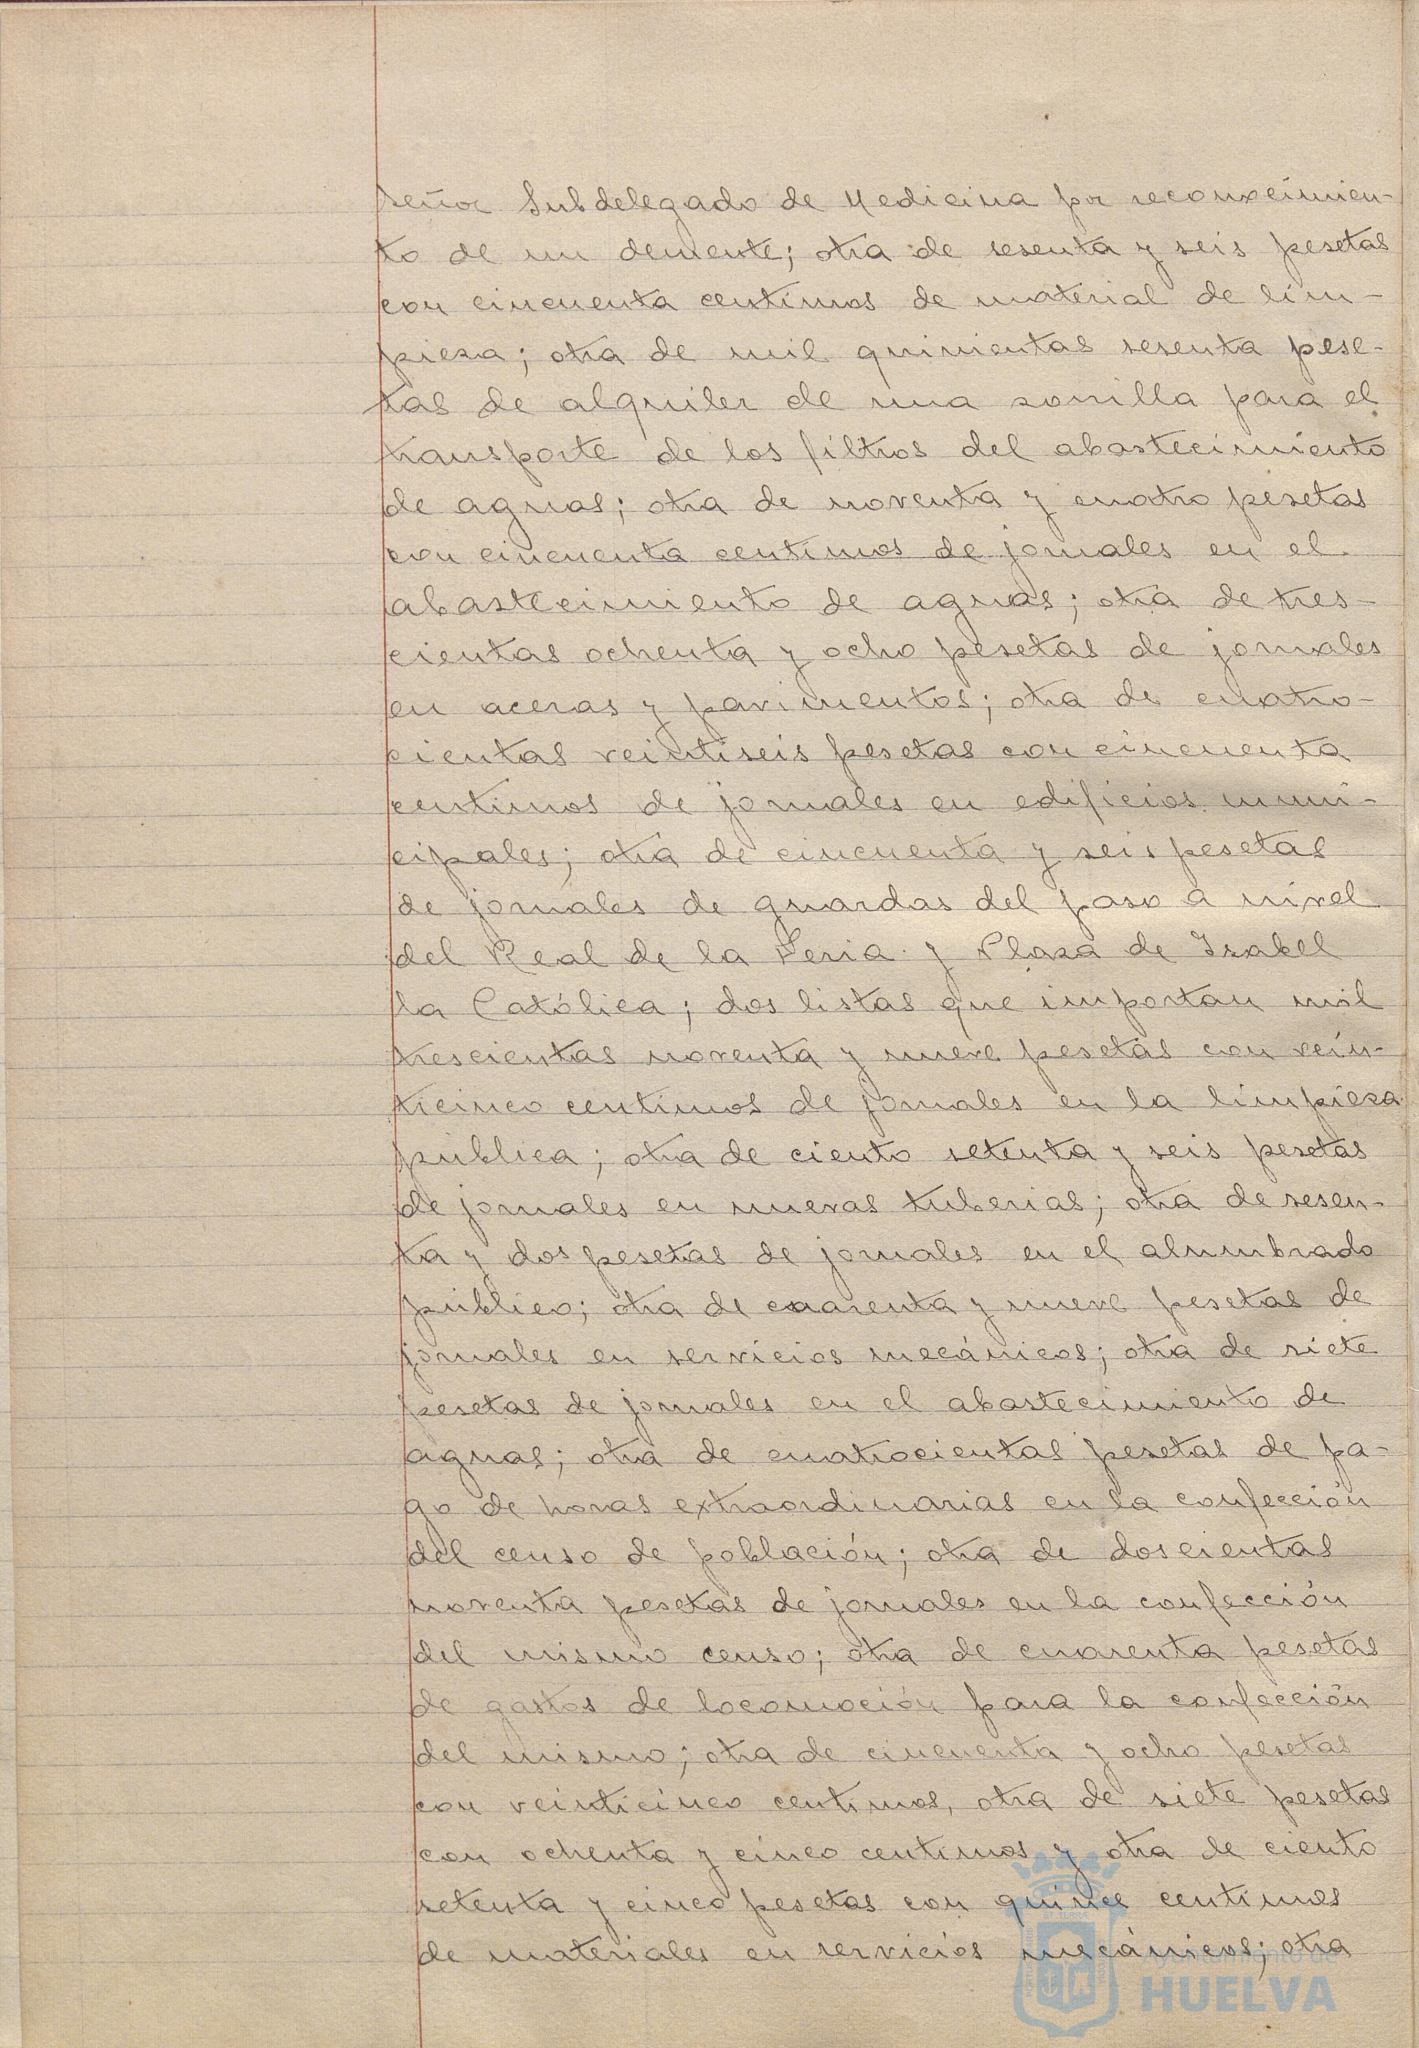 señor Subdelegado de Medicina por reconoxcimien-
to de un demente; otra de sesenta y seis pesetas
con cincuenta centimos de material de lim-
pieza; otra de mil quinientas sesenta pese-
tas de alquiler de una zorrilla para el
transporte de los filtros del abastecimiento
de aguas; otra de noventa y cuatro pesetas
con cincuenta centimos de jornales en el
abastecimiento de aguas; otra de tres-
cientas ochenta y ocho pesetas de jornales
en aceras y pavimentos; otra de cuatro-
cientas veintiseis pesetas con cincuenta
centimos de jornales en edificios muni-
cipales; otra de cincuenta y seis pesetas
de jornales de guardas del paso a nivel
del Real de la Feria y Plaza de Isabel
la Católica; dos listas que importan mil
trescientas noventa y nueve pesetas con vein-
ticinco centimos de jornales en la limpieza
pública; otra de ciento setenta y seis pesetas
de jornales en nuevas tuberias; otra de sesen-
ta y dos pesetas de jornales en el alumbrado
público; otra de cuarenta y nueve pesetas de
jornales en servicios mecánicos; otra de siete
pesetas de jornales en el abastecimiento de
aguas; otra de cuatrocientas pesetas de pa-
go de horas extraordinarias en la confección
del censo de población; otra de doscientas
noventa pesetas de jornales en la confección
del mismo censo; otra de cuarenta pesetas
de gastos de locomoción para la confección
del mismo; otra de cincuenta y ocho pesetas
con veinticinco centimos, otra de siete pesetas
con ochenta y cinco centimos y otra de ciento
setenta y cinco pesetas con quince centimos
de materiales en servicios mecánicos; otra
Ayuntamiento de
HUELVA